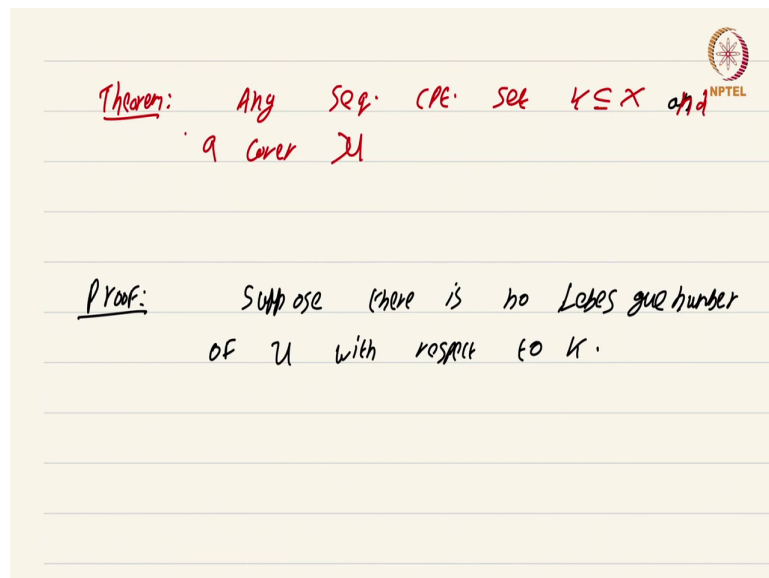 Theorem: Any Seq. CPt. Set K ⊆ X and
NPTEL
a cover U
Proof: Suppose there is no Lebesgue number
of U with respect to K.